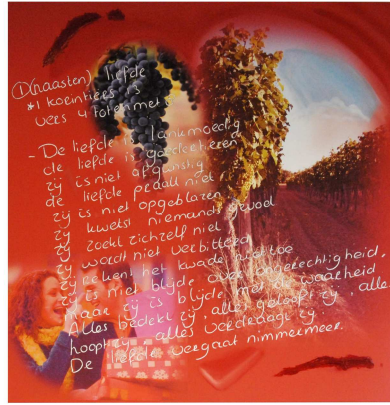 (naasten) liefde
*1 korintiërs 13
vers 4 tot en met 8
- De liefde is lankmoedig
de liefde is goedertieren
zij is niet afgunstig
de liefde praalt niet
zij is niet opgeblazen
zij kwetst niemands gevoel
zij zoekt zichzelf niet
zij wordt niet verbitterd
zij rekent het kwade niet toe
zij is niet blijde over ongerechtigheid,
maar zij is blijde met de waarheid
Alles bedekt zij, alles gelooft zij, alles
hoopt zij, alles verdraagt zij.
De liefde vergaat nimmermeer.